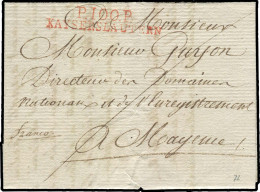 P.100.P.
KAISERSLAUTERN
Monsieur
Monsieur
Directeur des Domaines
Nationaux et de l'Enregistrement
franco
a Mayence